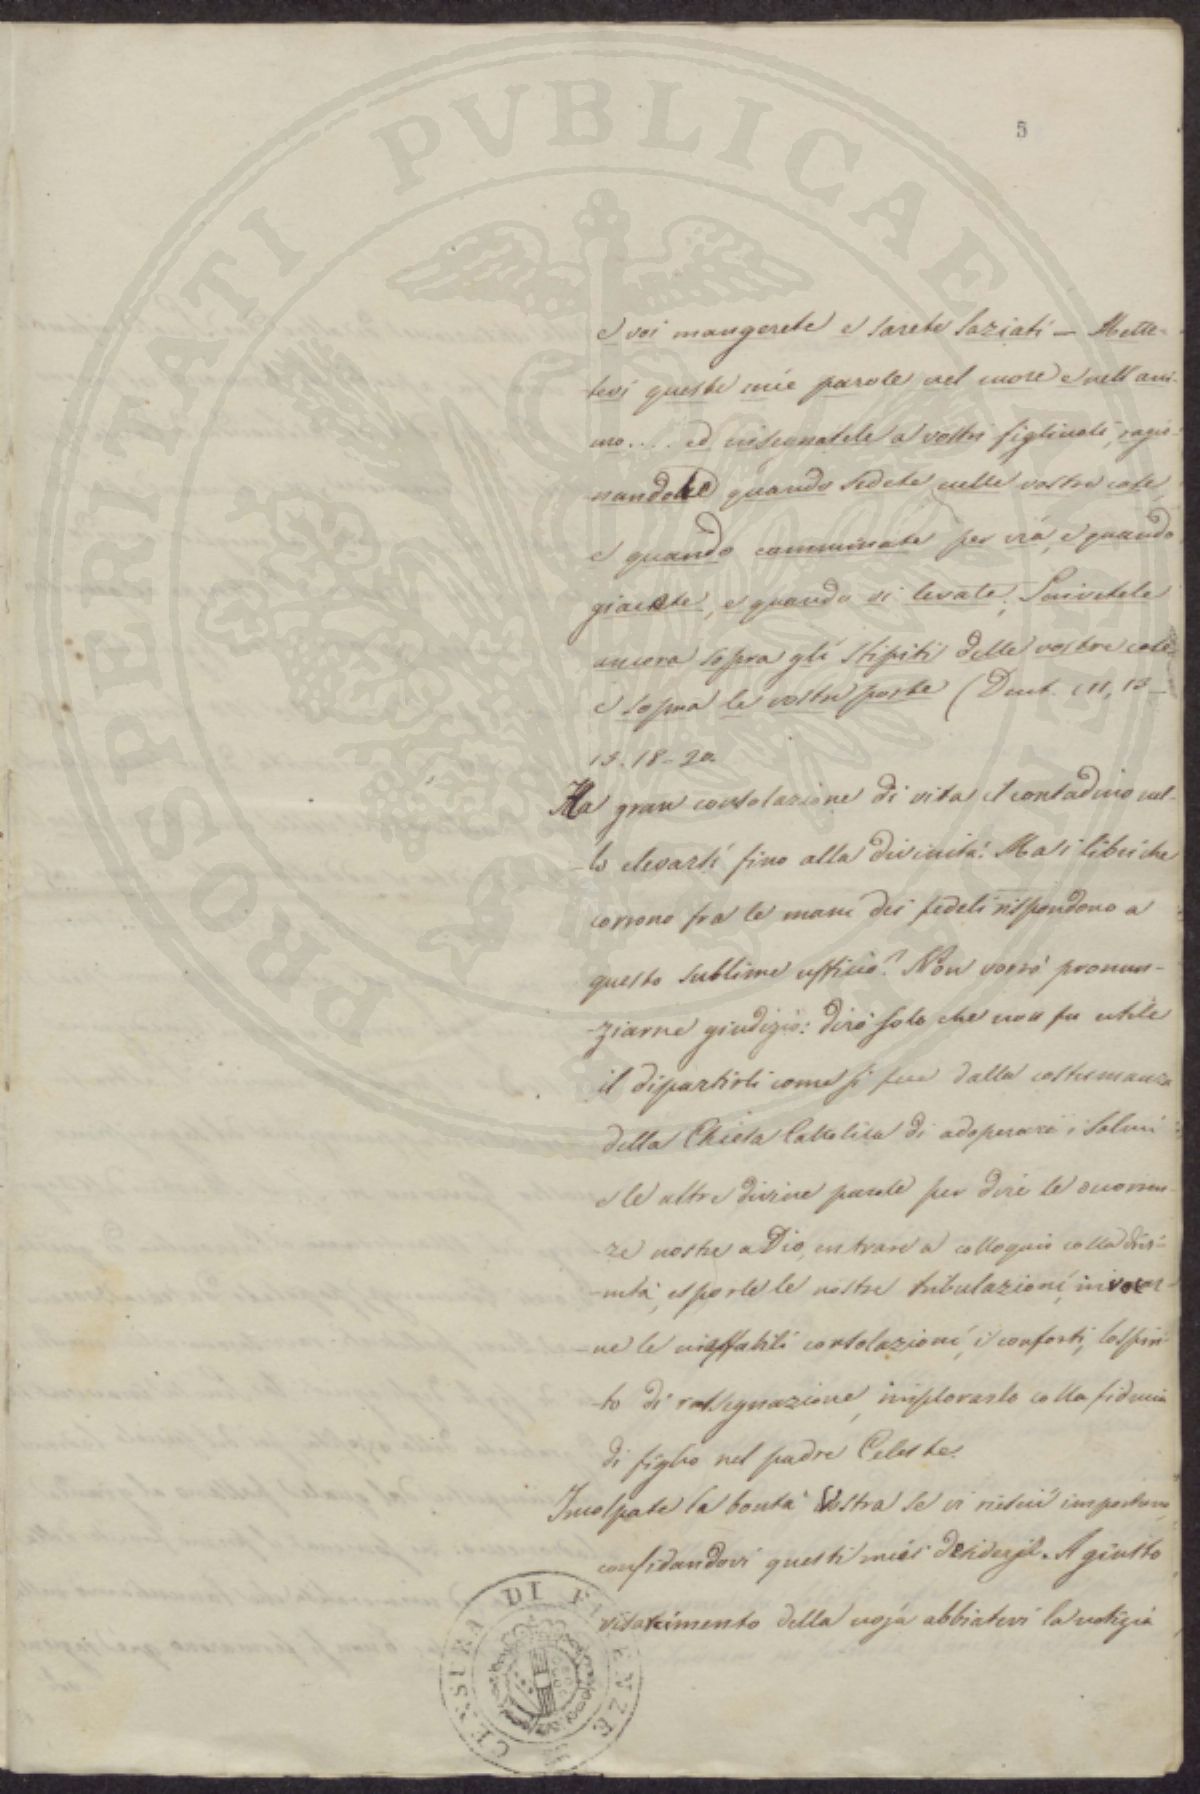 PROSPERITATI PVBLICAE
5
e voi mangerete e sarete saziati — Mette-
tevi queste mie parole nel cuore e nell'ani-
mo.... ed insegnatele a vostri figliuoli, ragio-
nandone quando sedete nelle vostre case,
e quando camminate per via, e quando
giacete, e quando vi levate; Scrivetele
ancora sopra gli stipiti delle vostre case
e sopra le vostre porte (Deut. c 11, 13—
15. 18-20.
Ha gran consolazione di vita il contadino nel-
lo elevarsi fino alla divinità. Ma i libri che
corrono fra le mani dei fedeli rispondono a
questo sublime ufficio? Non vorrò pronun-
ziarne giudizio: dirò solo che non fu utile
il dipartirsi come si fece dalla costumanza
della Chiesa Cattolica di adoperare i Salmi
e le altre divine parole per dire le
nostre a Dio, entrare a colloquio colla divi-
nità, esporle le nostre tribulazioni, invocar-
ne le ineffabili consolazioni, i conforti, lo spiri-
to di rassegnazione, implorarlo colla fiducia
di figlio nel padre Celeste.
Incolpate la bontà Vostra se vi riescii importuno,
confidandovi questi miei desiderj. A giusto
risarcimento della noja abbiatevi la notizia
CENSURA DI FIRENZE